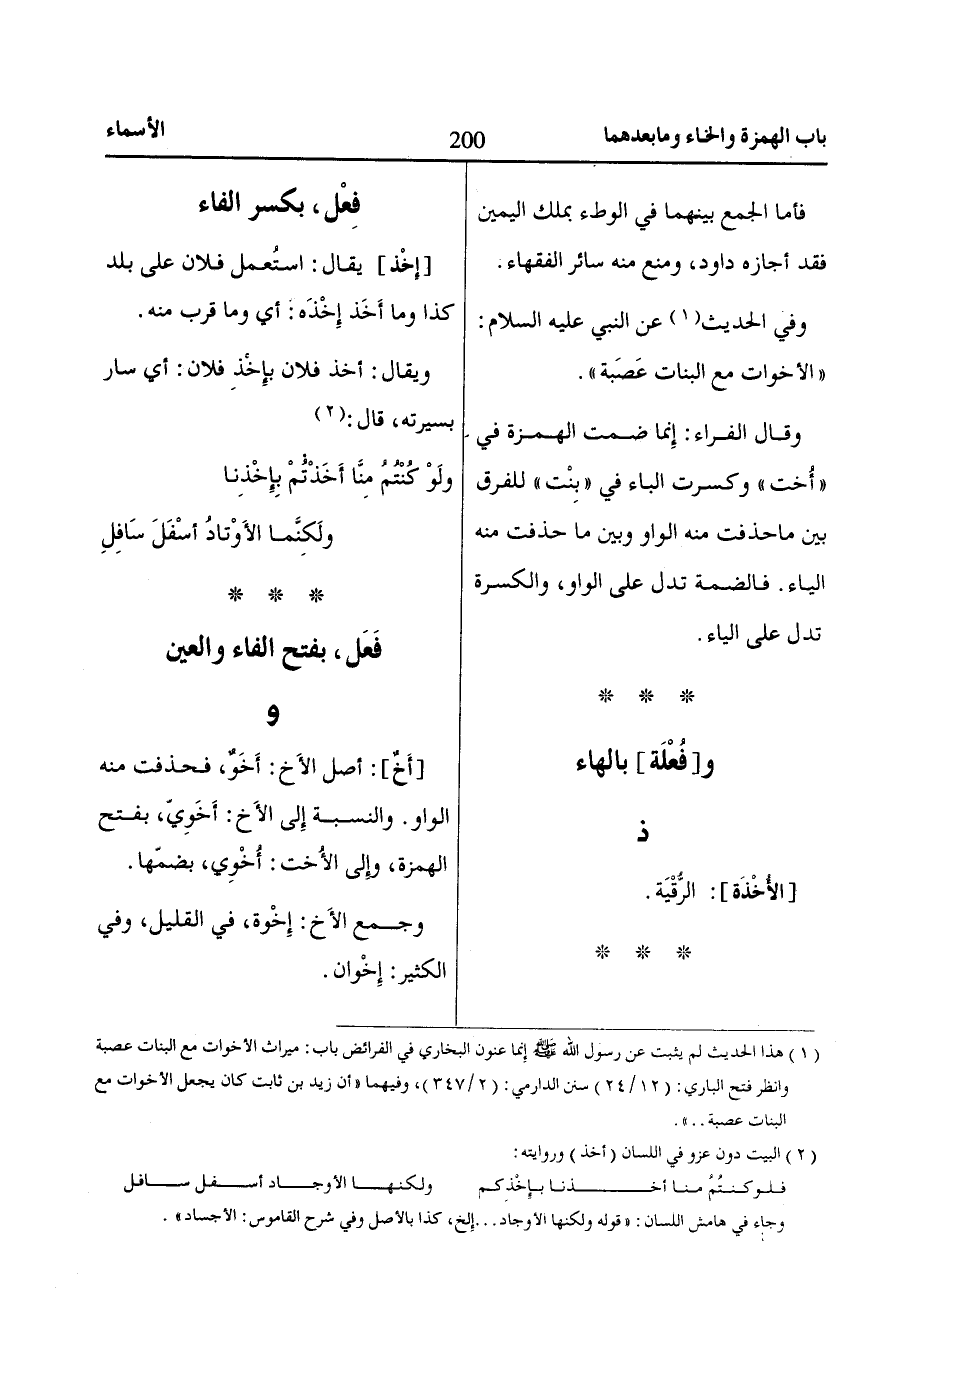 باب الهمزة والخاء ومابعدهما 200 الأسماء
فأما الجمع بينهما في الوطء بملك اليمين
فقد أجازه داود، ومنع منه سائر الفقهاء.
وفي الحديث(١) عن النبي عليه السلام:
«الأخوات مع البنات عَصَبَة».
وقال الفراء: إنما ضمت الهمزة في
«أُخت» وكسرت الباء في «بِنْت» للفرق
بين ماحذفت منه الواو وبين ما حذفت منه
الياء. فالضمة تدل على الواو، والكسرة
تدل على الياء.
* * *
و[فُعْلَة] بالهاء
ذ
[الأُخْذَة]: الرُّقْيَة.
* * *
فِعْل، بكسر الفاء
[إِخْذ] يقال: استُعمل فلان على بلد
كذا وما أَخَذ إِخْذَه: أي وما قرب منه.
ويقال: أخذ فلان بإِخْذِ فلان: أي سار
بسيرته، قال:(٢)
ولَوْ كُنْتُمُ مِنَّا أَخَذْتُمْ بِإِخْذِنا
ولَكِنَّما الأَوْتادُ أَسْفَلَ سَافِلِ
* * *
فَعَل، بفتح الفاء والعين
و
[أَخٌ]: أصل الأخ: أَخَوٌ، فحذفت منه
الواو. والنسبة إلى الأخ: أَخَوِيّ، بفتح
الهمزة، وإلى الأُخت: أُخْوِي، بضمّها.
وجمع الأخ: إِخْوة، في القليل، وفي
الكثير: إِخْوان.
(١) هذا الحديث لم يثبت عن رسول الله ﷺ إنما عنون البخاري في الفرائض باب: ميراث الأخوات مع البنات عصبة
وانظر فتح الباري: (٢٤/١٢) سنن الدارمي: (٣٤٧/٢)، وفيهما «أن زيد بن ثابت كان يجعل الأخوات مع
البنات عصبة..».
(٢) البيت دون عزو في اللسان (أخذ) وروايته:
فلو كنتُمُ منا أخذنا بإِخْذِكم ولكنها الأوجاد أسفل سافل
وجاء في هامش اللسان: «قوله ولكنها الأوجاد...إلخ، كذا بالأصل وفي شرح القاموس: الأجساد».